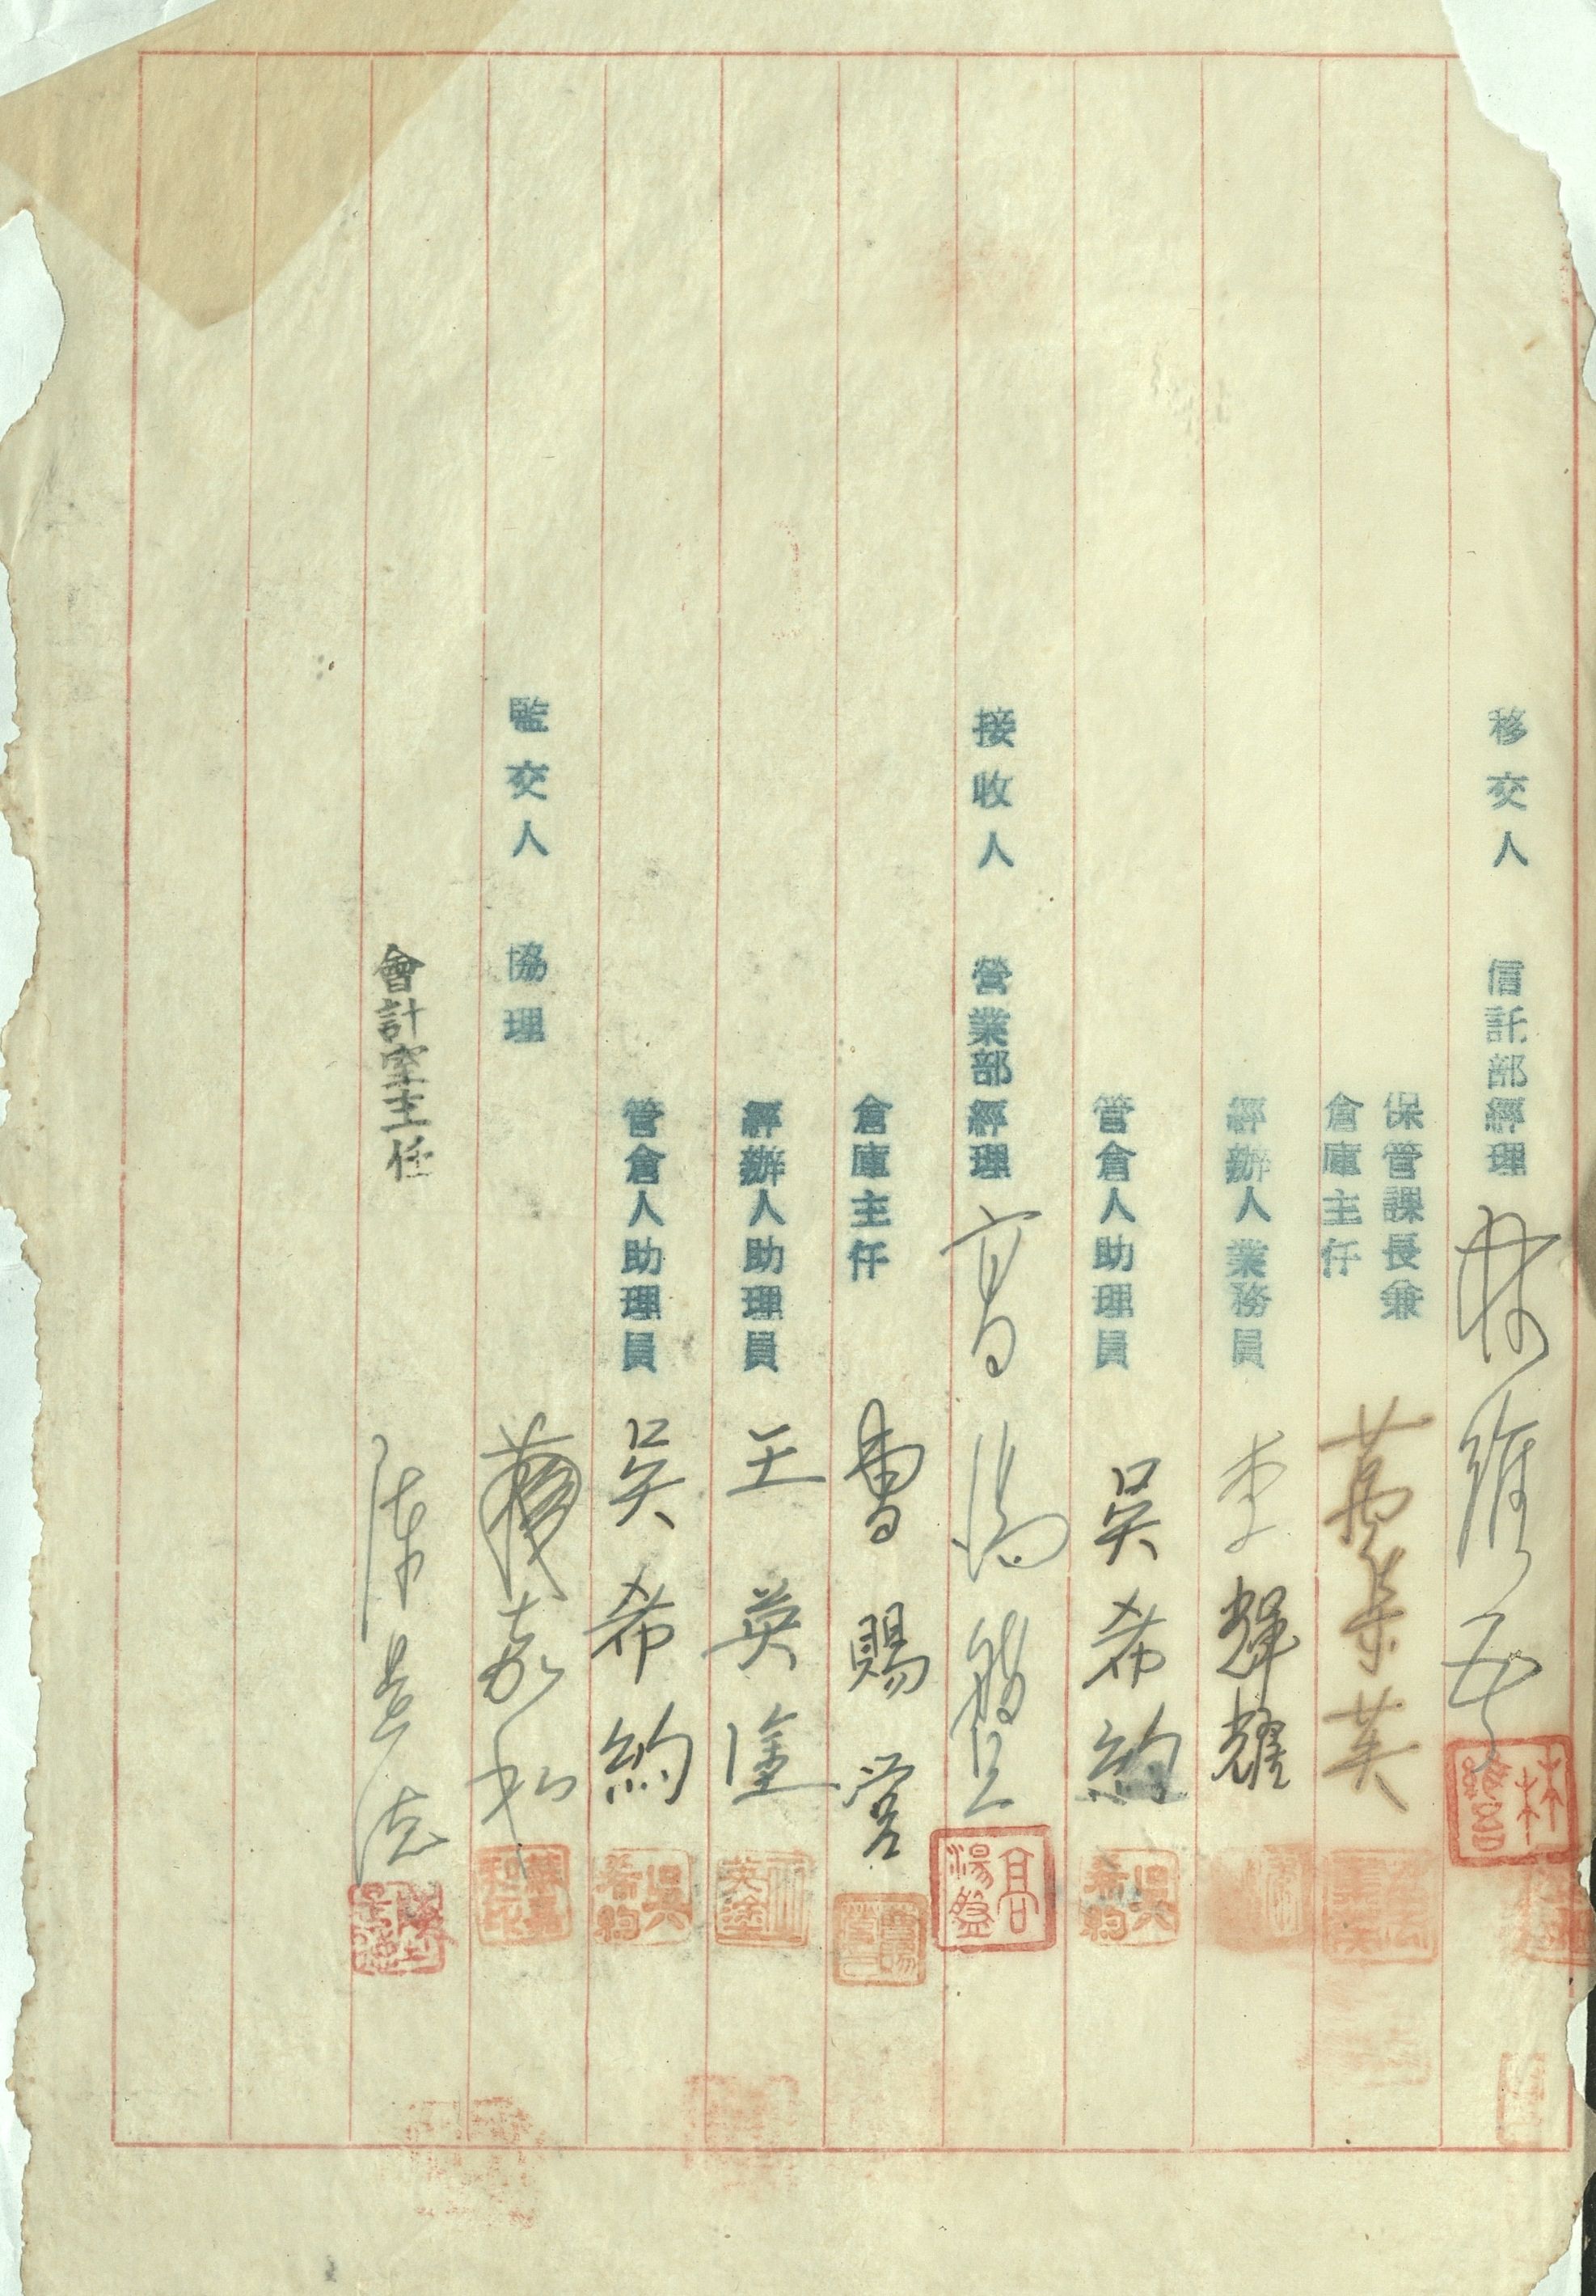 移交人 信託部經理 林維吾
保管課長兼
倉庫主任 葉英
經辦人業務員 李輝耀
管倉人助理員 吳希約
接收人 營業部經理 高湯盤
倉庫主任 曹賜營
經辦人助理員 王英塗
管倉人助理員 吳希約
監交人 協理 嘉和
會計室主任 陳